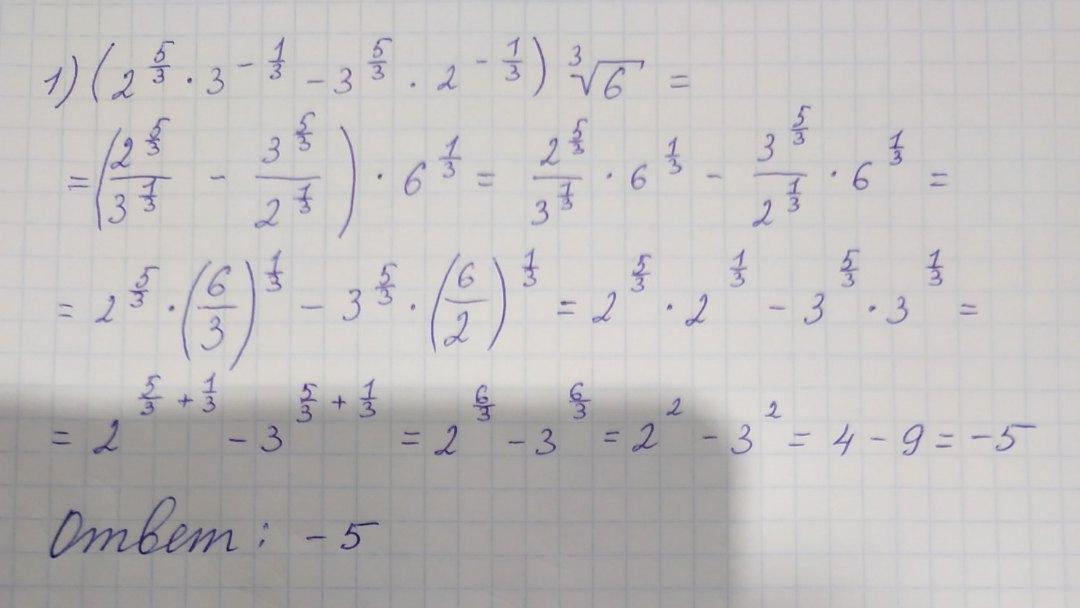 1) (2^{5/3} · 3^{-1/3} - 3^{5/3} · 2^{-1/3}) ∛6 =
= (2^{5/3}/3^{1/3} - 3^{5/3}/2^{1/3}) · 6^{1/3} = 2^{5/3}/3^{1/3} · 6^{1/3} - 3^{5/3}/2^{1/3} · 6^{1/3} =
= 2^{5/3} · (6/3)^{1/3} - 3^{5/3} · (6/2)^{1/3} = 2^{5/3} · 2^{1/3} - 3^{5/3} · 3^{1/3} =
= 2^{5/3 + 1/3} - 3^{5/3 + 1/3} = 2^{6/3} - 3^{6/3} = 2^2 - 3^2 = 4 - 9 = -5
Ответ: -5